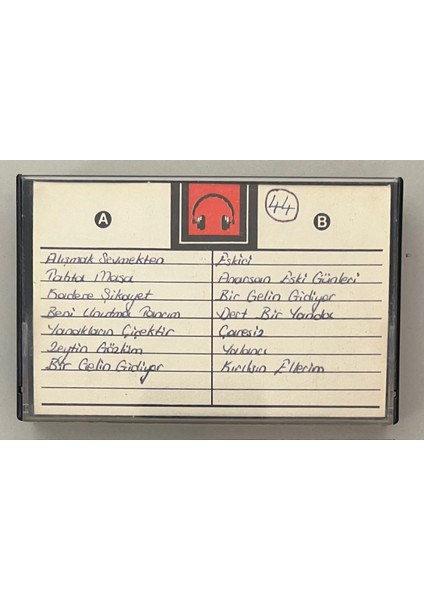 A
44
B
Alışmak Sevmekten
Tahta Masa
Kadere Şikayet
Beni Unutma Tanrım
Yanakların Çiçektir
Zeytin Gözlüm
Bir Gelin Gidiyor
Eskici
Anarsan Eski Günleri
Bir Gelin Gidiyor
Dert Bir Yandan
Çaresiz
Yabancı
Kırılsın Ellerim